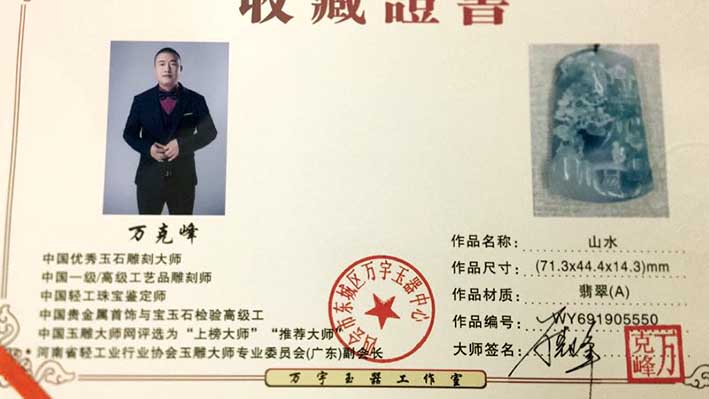 收藏證書
万克峰
中国优秀玉石雕刻大师
中国一级/高级工艺品雕刻师
中国轻工珠宝鉴定师
中国贵金属首饰与宝玉石检验高级工
中国玉雕大师网评选为“上榜大师”“推荐大师”
河南省轻工业行业协会玉雕大师专业委员会(广东)副会长
四会市东城区万宇玉器中心
作品名称: 山水
作品尺寸: (71.3x44.4x14.3)mm
作品材质: 翡翠(A)
作品编号: WY691905550
大师签名: 万克峰
万克峰
万宇玉器工作室